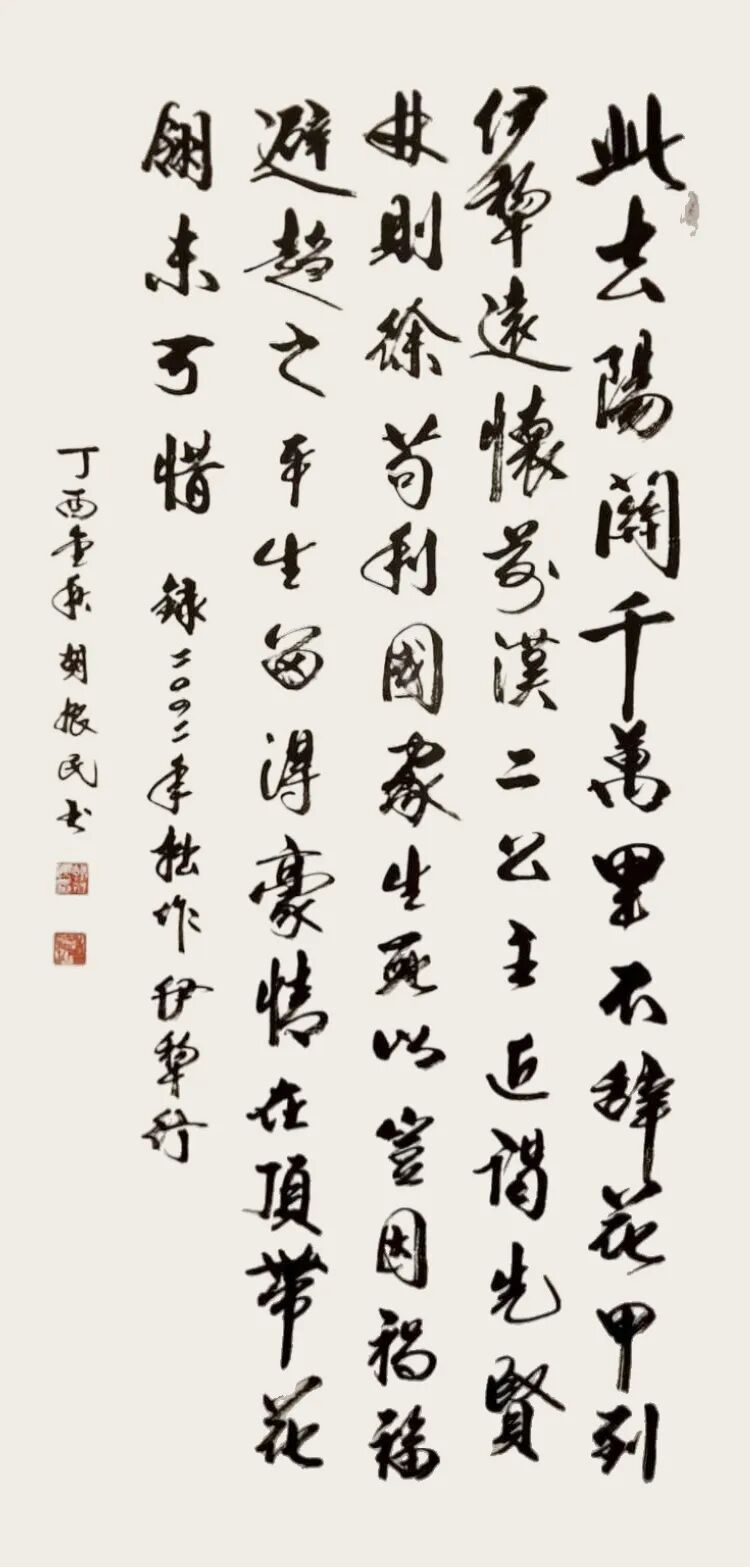 此去陽關千萬里不辭花甲到
伊犂遠懷前漢二公主近謁先賢
林則徐苟利國家生死以豈因禍福
避趨之平生留得豪情在頂帶花
翎未可惜 録二〇〇二年拙作伊犂行
丁酉金秋胡振民书